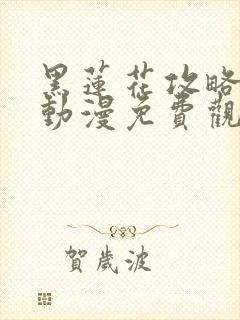 黑蓮花攻略
動漫免費觀
賀歲波